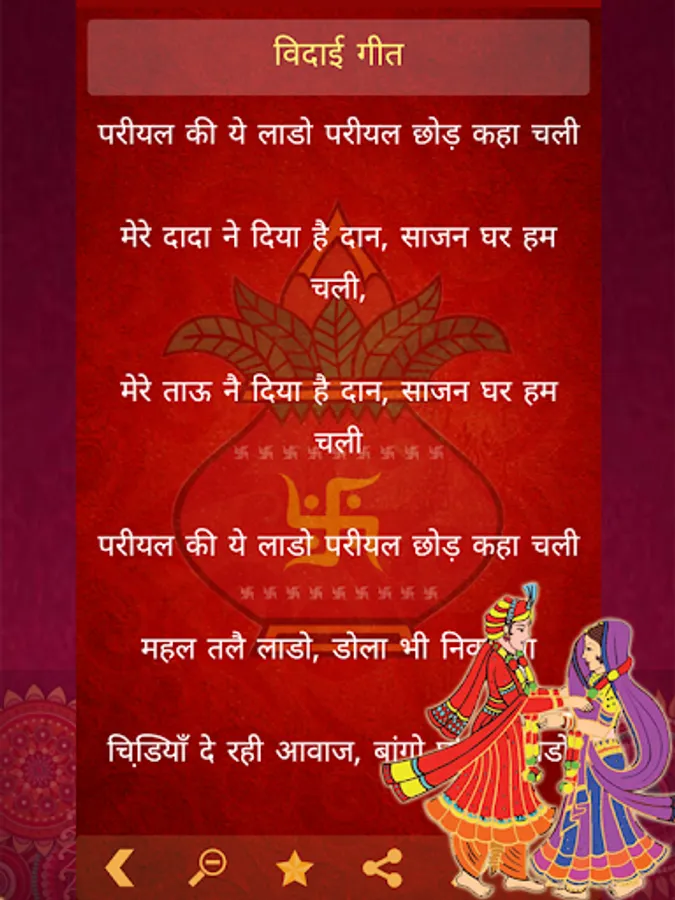 विदाई गीत
परीयल की ये लाडो परीयल छोड़ कहा चली
मेरे दादा ने दिया है दान, साजन घर हम
चली,
मेरे ताऊ नै दिया है दान, साजन घर हम
चली
परीयल की ये लाडो परीयल छोड़ कहा चली
महल तलै लाडो, डोला भी
चिडि़याँ दे रही आवाज, बांगो